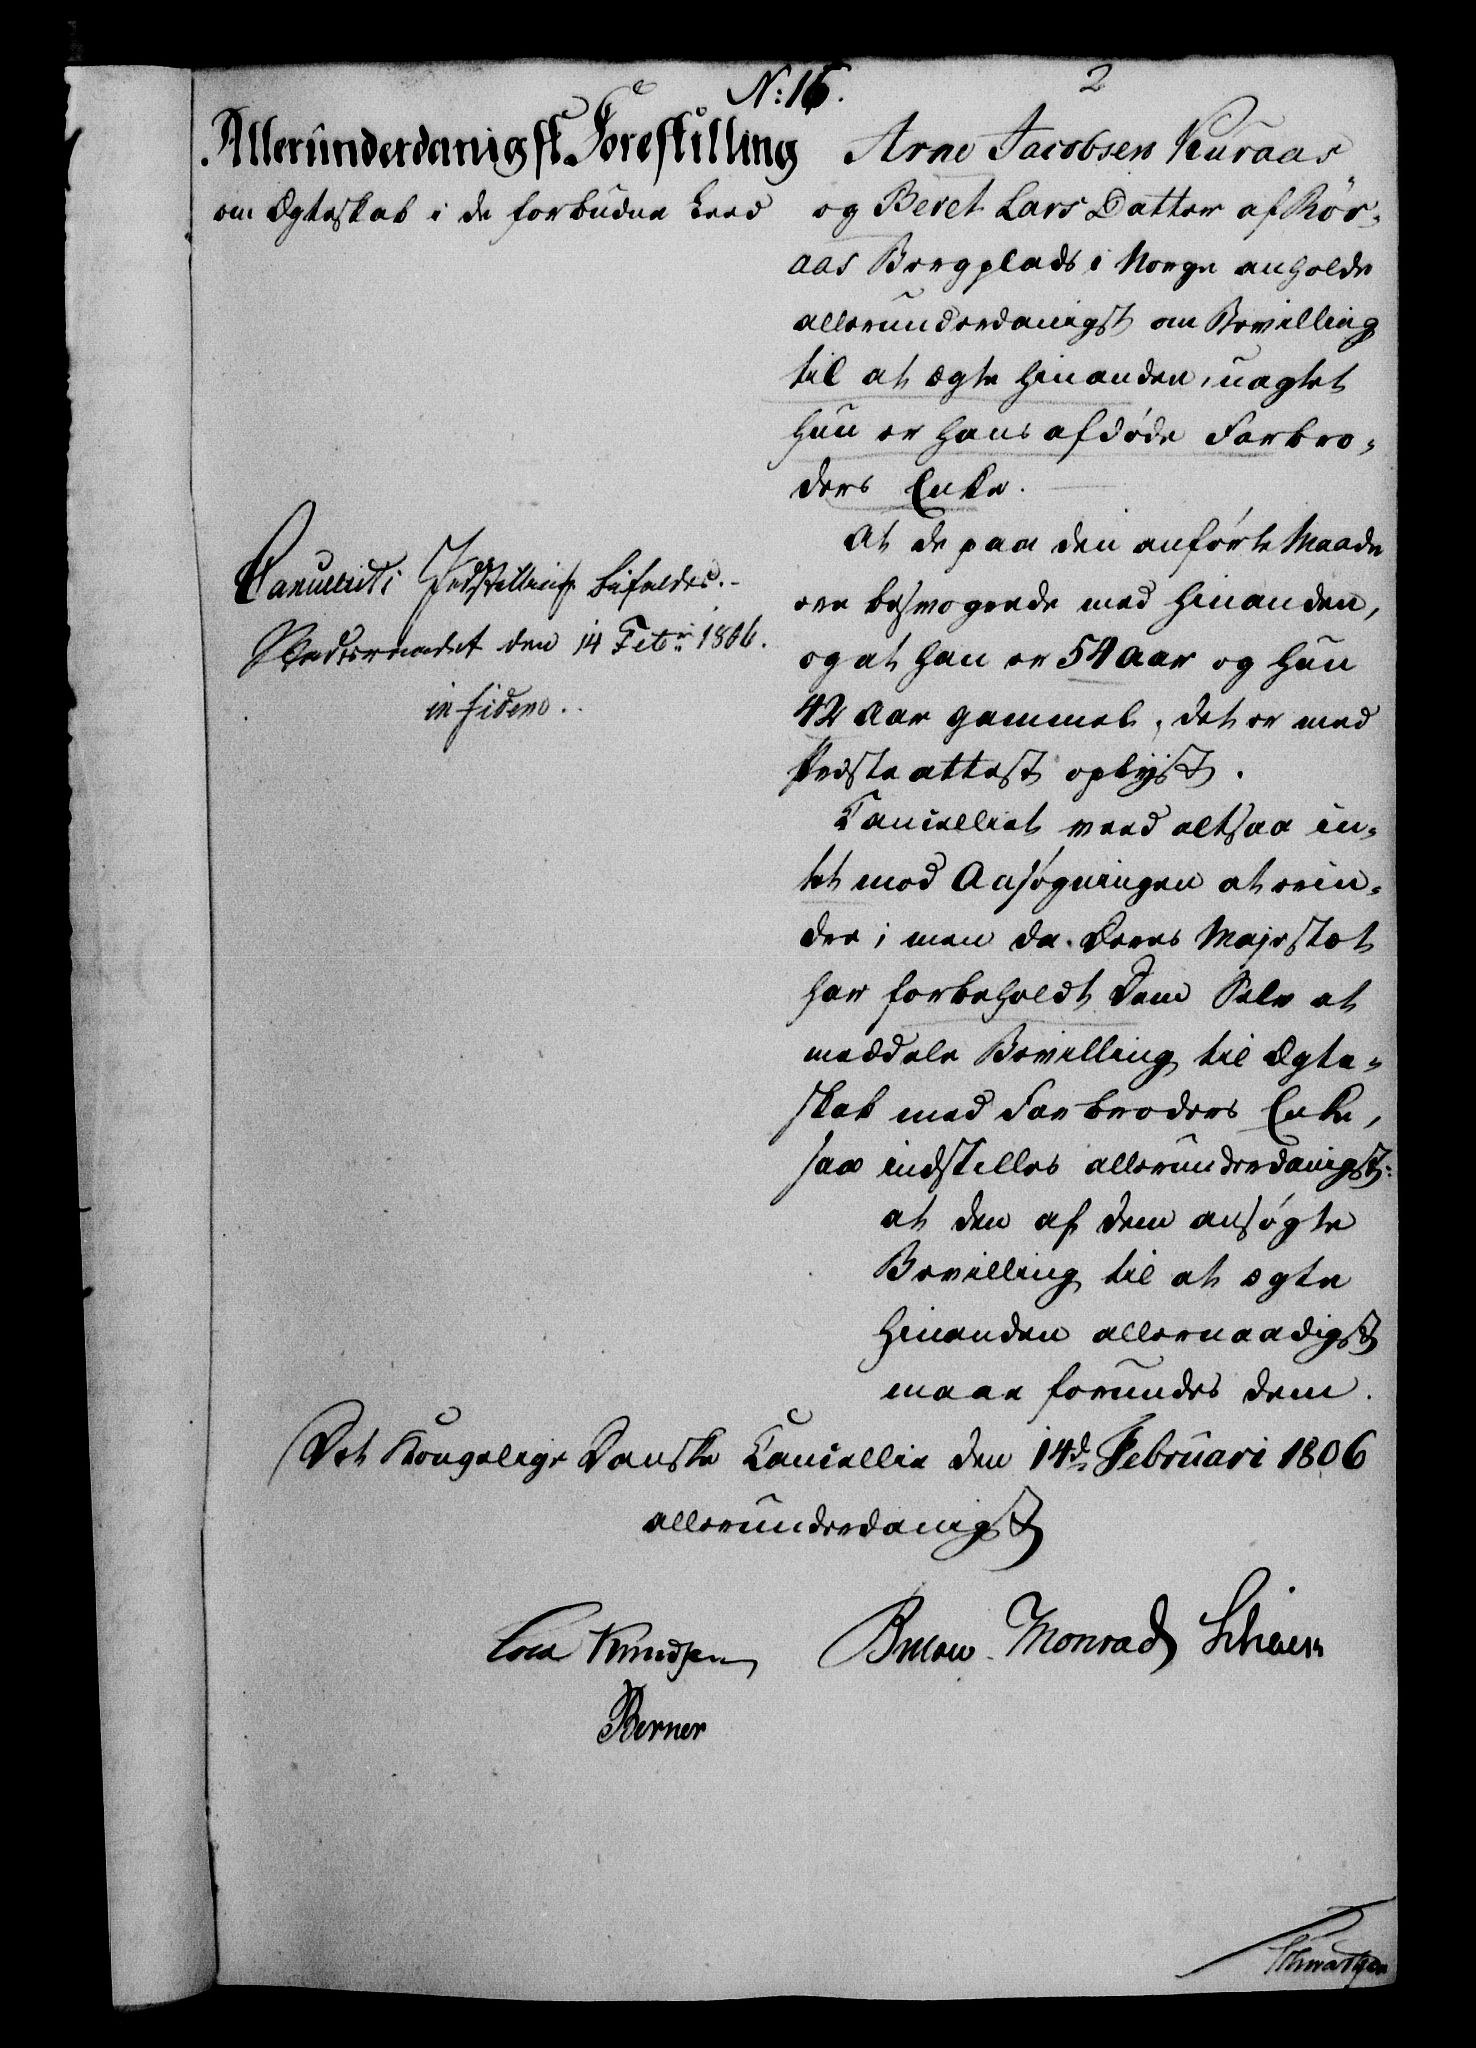 N: 16.
2
Allerunderdanigst Forestilling
om Ægteskab i de forbudne Leed
Arne Jacobsen Kuraas
og Beret Lars Datter af Rör-
aas Bergplads i Norge anholde
allerunderdanigst om Bevilling
til at ægte hinanden, uagtet
hun er hans afdøde Farbro-
ders Enke.
At de paa den anførte Maade
ere besvogrede med hinanden,
og at han er 54 Aar og hun
42 Aar gammel, det er med
Præste attest oplyst.
Cancelliet veed altsaa in-
tet mod Ansøgningen at erin-
dre; men da Deres Majestæt
har forbeholdt Dem Selv at
meddele Bevilling til Ægte-
skab med Farbroders Enke,
saa indstilles allerunderdanigst:
at den af dem ansøgte
Bevilling til at ægte
hinanden allernaadigst
maae forundes dem.
Cancelliets Indstilling bifaldes.
den 14 Febr. 1806.
in fidem.
Det Kongelige Danske Cancellie den 14d Februari 1806
allerunderdanigst
Cold Knudsen Bülow Monrad
Berner